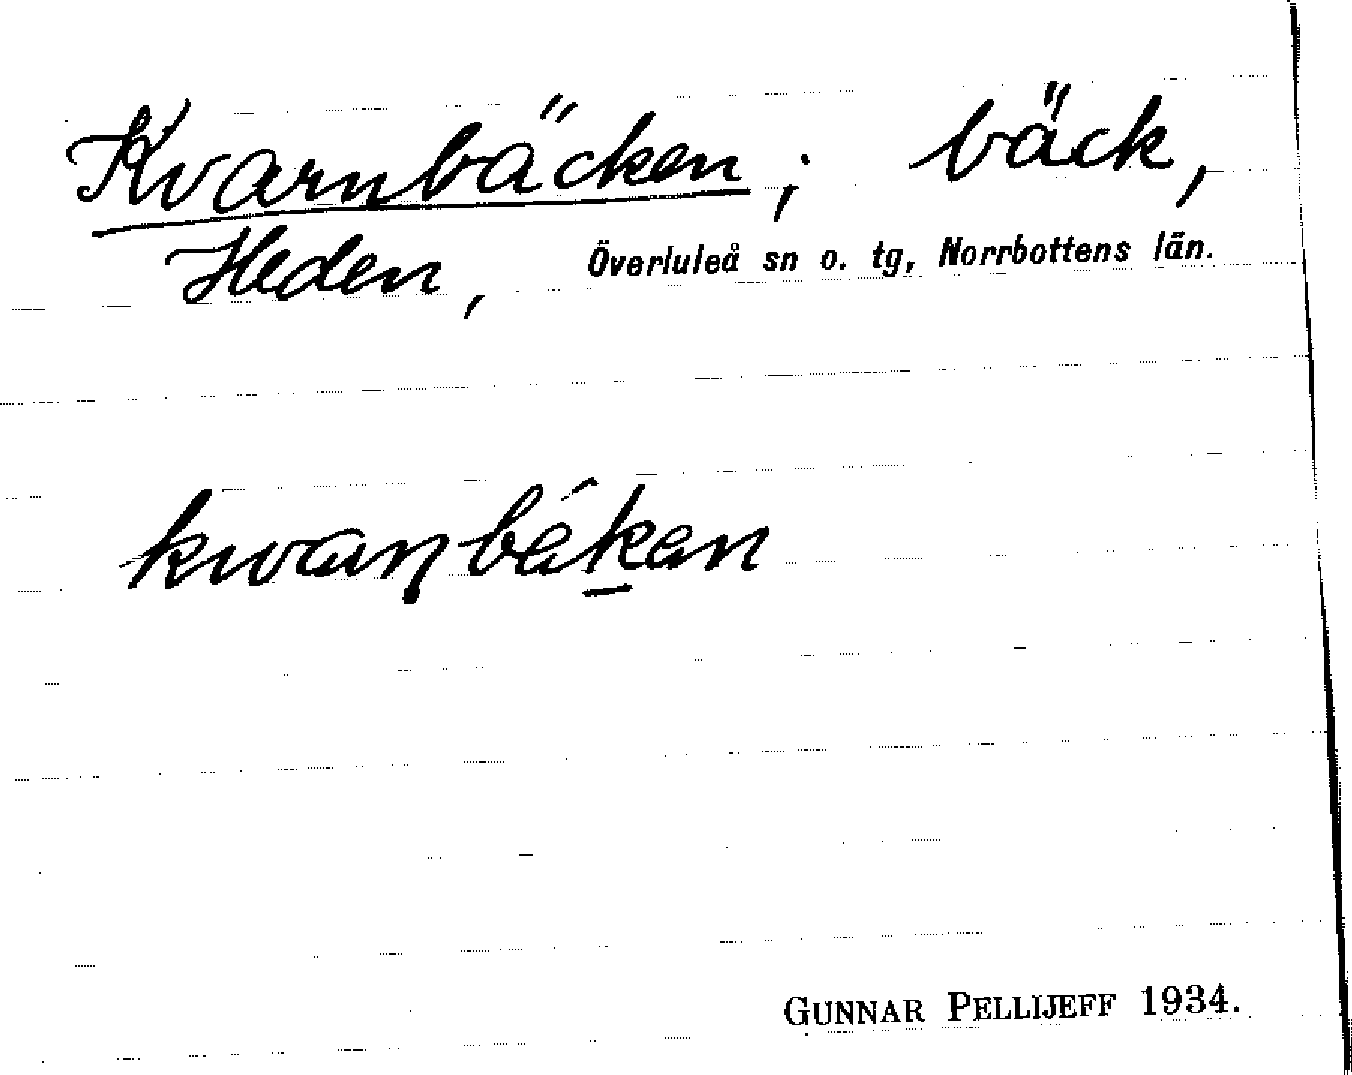 Kvarnbäcken; bäck,
Heden, Överluleå sn o. tg, Norrbottens län.
kwaɳbékan
GUNNAR PELLIJEFF 1934.